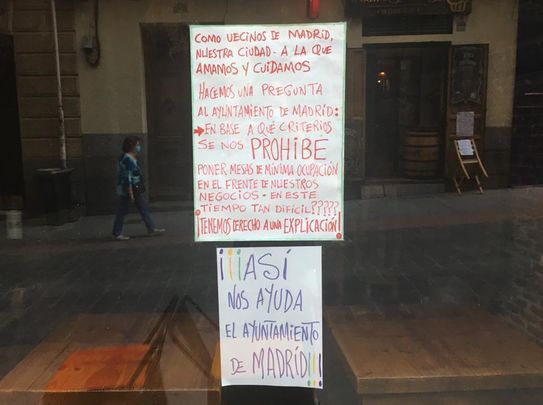 COMO VECINOS DE MADRID,
NUESTRA CIUDAD - A LA QUE
AMAMOS Y CUIDAMOS
HACEMOS UNA PREGUNTA
AL AYUNTAMIENTO DE MADRID:
→EN BASE A QUÉ CRITERIOS
SE NOS PROHIBE
PONER MESAS DE MÍNIMA OCUPACIÓN
EN EL FRENTE DE NUESTROS
NEGOCIOS - EN ESTE
TIEMPO TAN DIFÍCIL?????
¡TENEMOS DERECHO A UNA EXPLICACIÓN!
¡¡¡ASÍ
NOS AYUDA
EL AYUNTAMIENTO
DE MADRID!!!